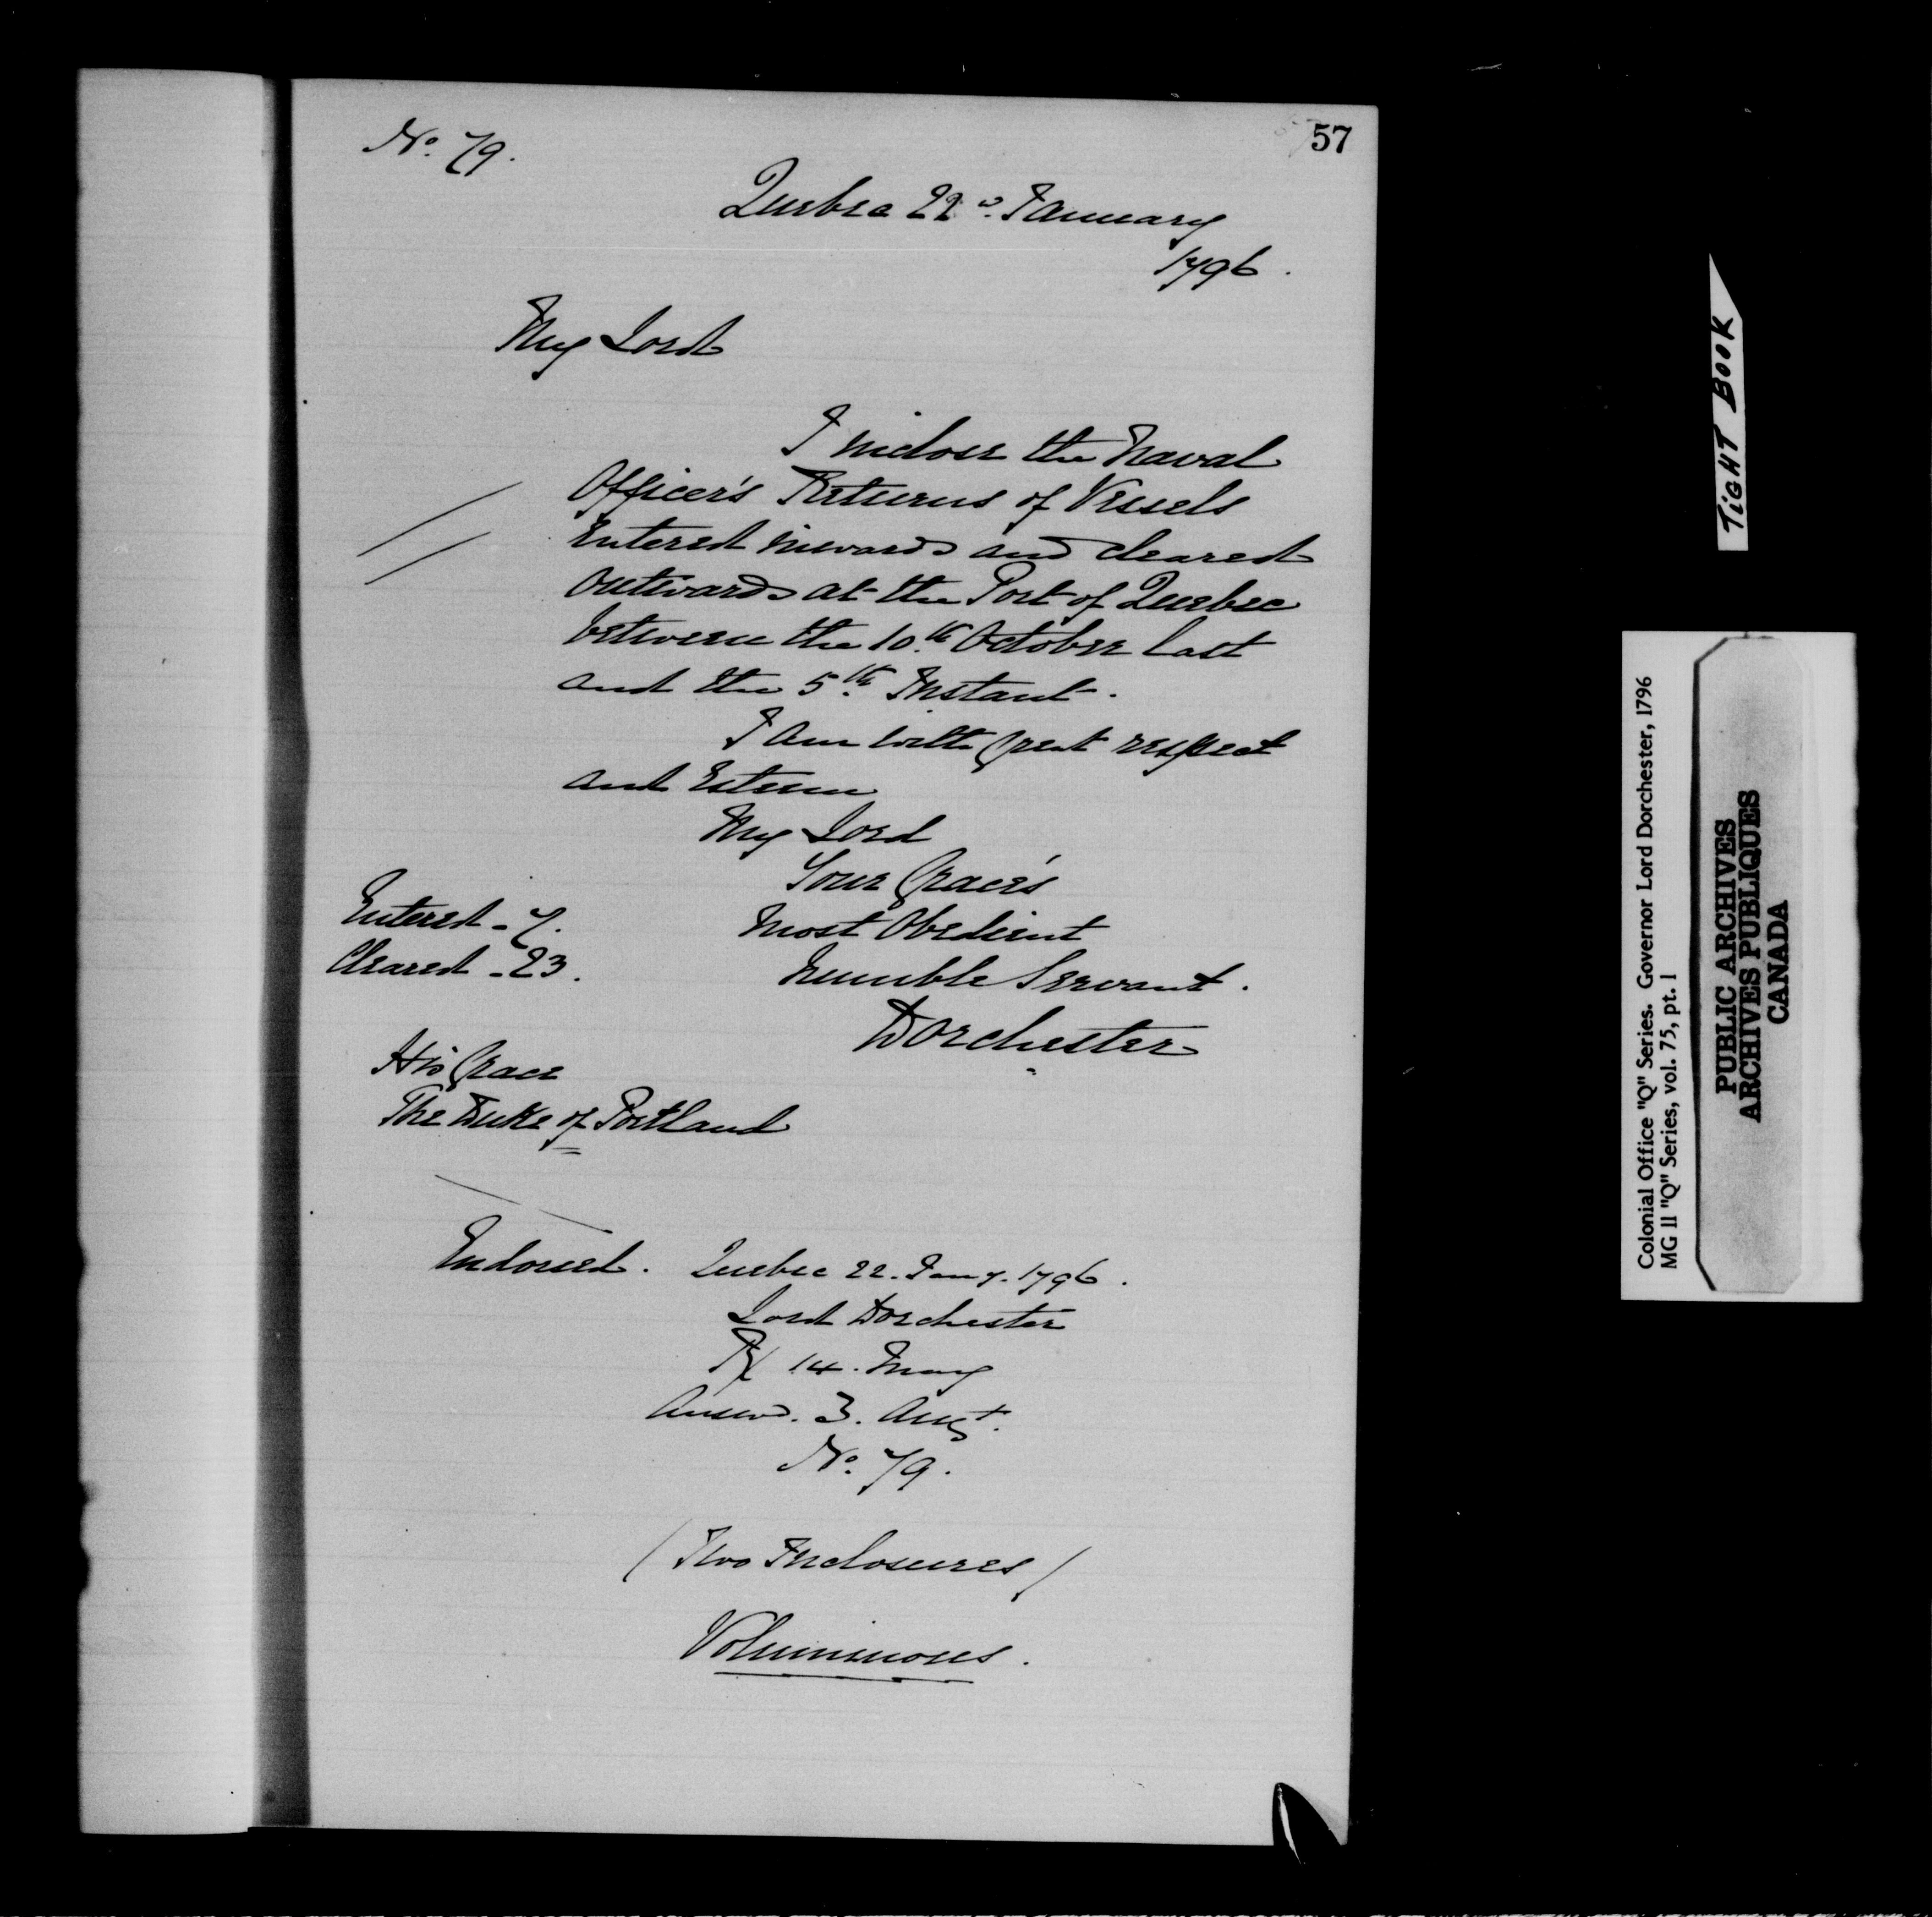 57
No. 79.
Quebec 22d. January
1796.
My Lord
I inclose the Naval
Officer's Returns of Vessels
Entered inwards and cleared
outwards at the Port of Quebec
between the 10th October last
and the 5th Instant.
I am with great respect
and Esteem
My Lord
Your Grace's
Most Obedient
humble Servant.
Dorchester
Entered - 7.
Cleared - 23.
His Grace
The Duke of Portland
Endorsed. Quebec 22. Jany. 1796.
Lord Dorchester
R/ 14. May
Answd. 3. Augt.
No. 79.
(Two Inclosures)
Voluminous.
TIGHT BOOK
Colonial Office "Q" Series. Governor Lord Dorchester, 1796
MG 11 "Q" Series, vol. 75, pt. 1
PUBLIC ARCHIVES
ARCHIVES PUBLIQUES
CANADA